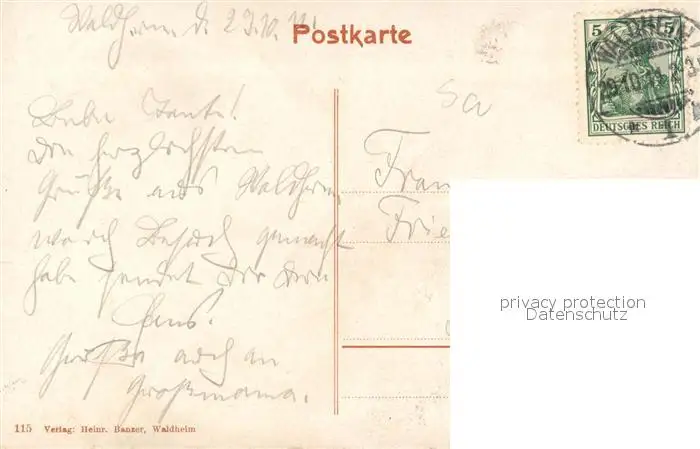 Waldheim d. 23.10.11.
Postkarte
5 5
DEUTSCHES REICH
Liebe Tante!
Die herzlichsten
Grüße aus Waldheim
wo ich Besuch gemacht
habe sendet Dir Dein
Hans.
Grüße auch an
Großmama.
Frau
Frie
privacy protection
Datenschutz
115 Verlag: Heinr. Banzer, Waldheim